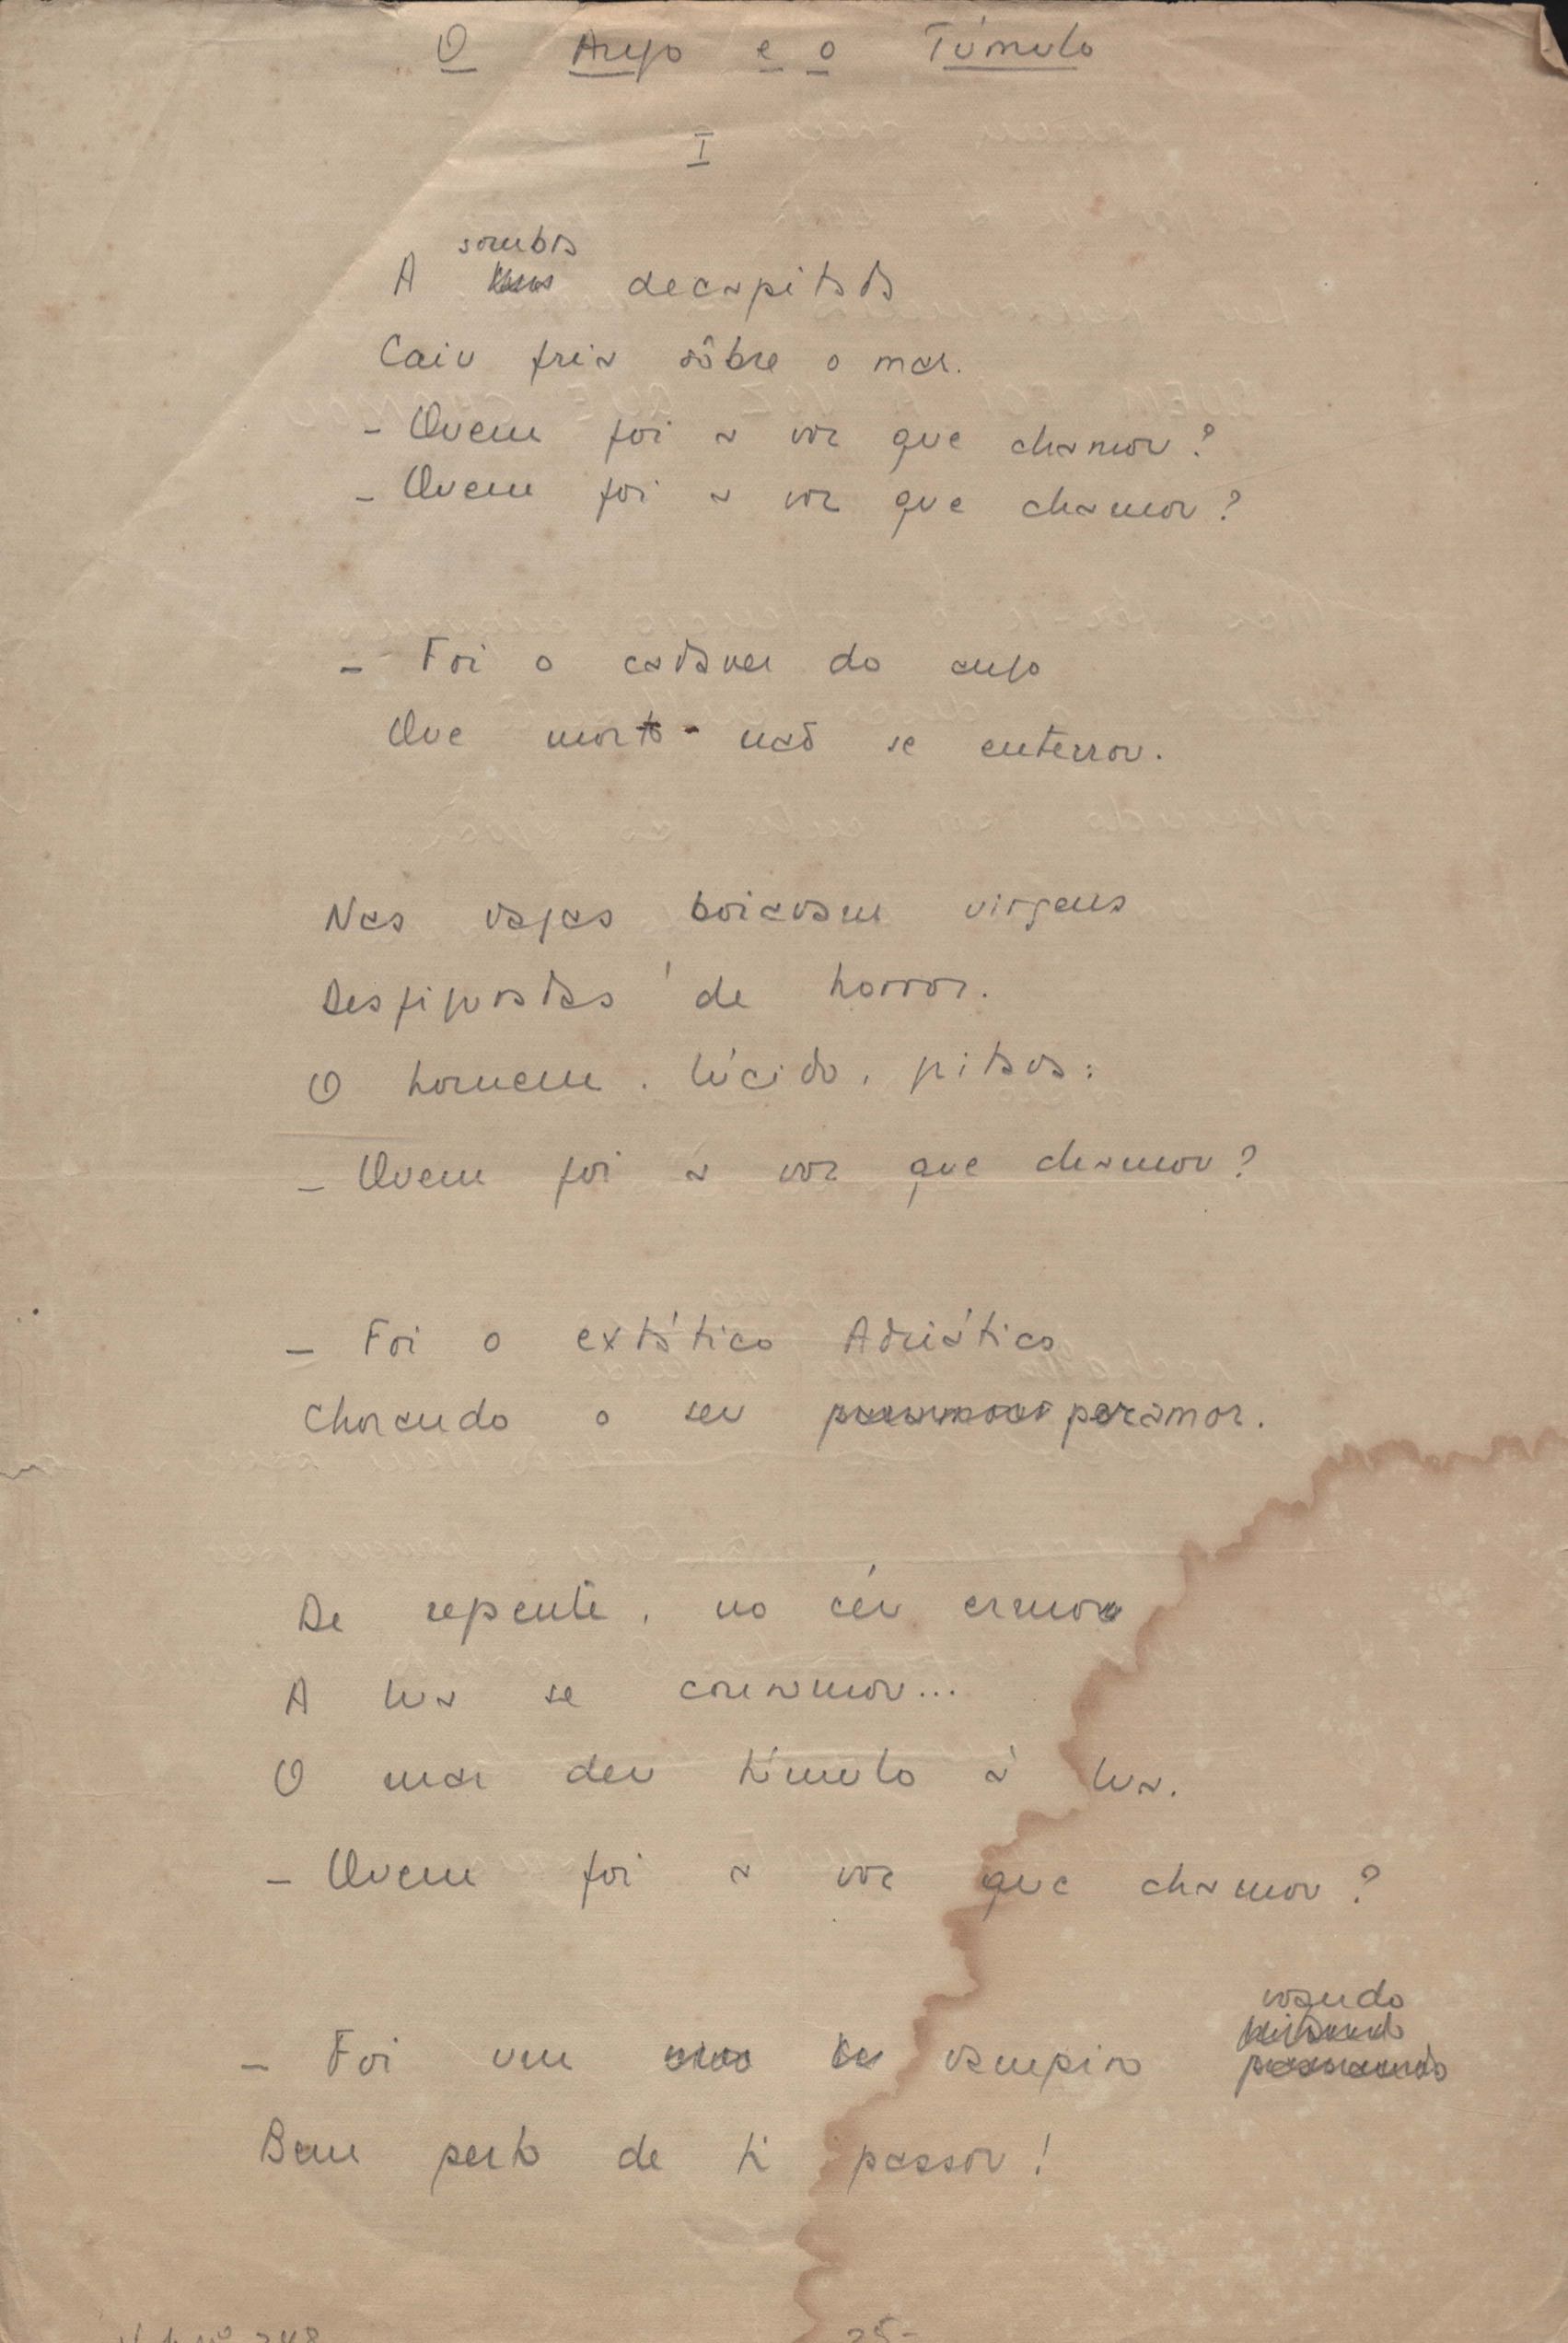 O Anjo e o Túmulo
I
sombra
A decapitada
Caiu fria sôbre o mar.
- Quem foi a voz que chamou?
- Quem foi a voz que chamou?
- Foi o cadaver do anjo
Que morto não se enterrou.
Nas vagas boiavam virgens
Desfiguradas de horror.
O homem, lúcido, gritava:
- Quem foi a voz que chamou?
- Foi o extático Adriático
Chorando o seu paramor.
De repente, no céu ermo
A lua se consumou...
O mar deu túmulo à lua.
- Quem foi a voz que chamou?
voando
- Foi um vampiro
Bem perto de ti passou!
25-